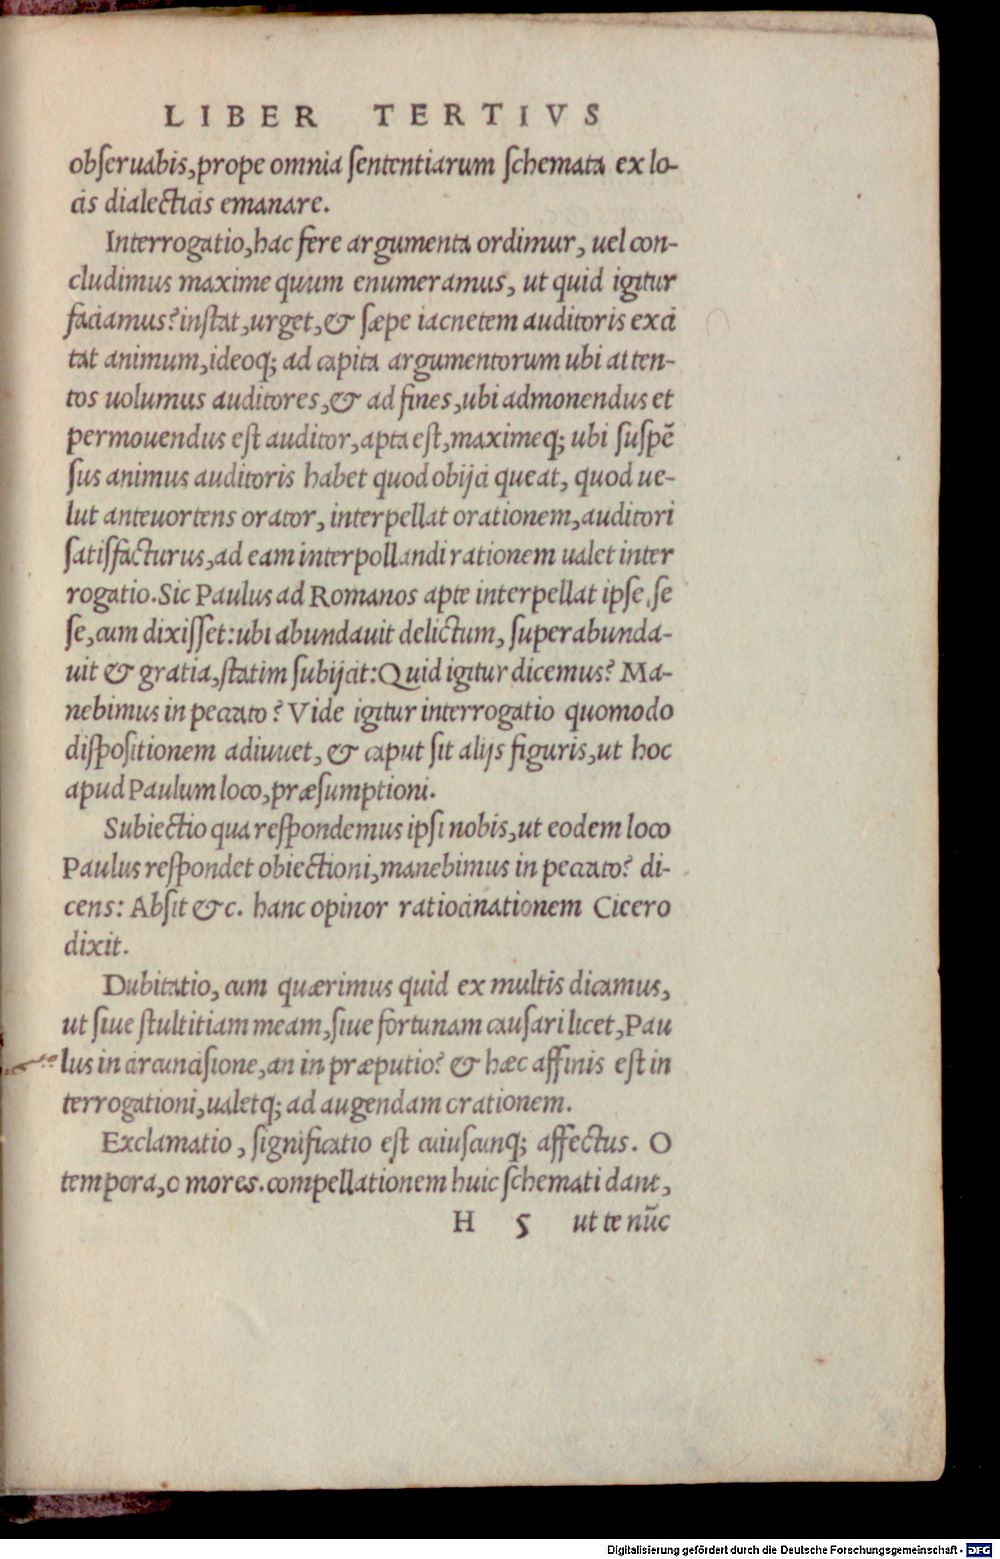 LIBER TERTIVS
obſeruabis,prope omnia ſententiarum ſchemata ex lo-
cis dialecticis emanare.
Interrogatio,hac fere argumenta ordimur, uel con-
cludimus maxime quum enumeramus, ut quid igitur
faciamus? inſtat,urget,& ſæpe iacnetem auditoris exci
tat animum,ideoq; ad capita argumentorum ubi atten-
tos uolumus auditores,& ad fines,ubi admonendus et
permouendus eſt auditor,apta eſt,maximeq; ubi ſuſpē
ſus animus auditoris habet quod obijci queat, quod ue-
lut anteuortens orator, interpellat orationem,auditori
ſatisfacturus,ad eam interpollandi rationem ualet inter
rogatio.Sic Paulus ad Romanos apte interpellat ipſe,ſe
ſe,cum dixiſſet:ubi abundauit delictum, ſuperabunda-
uit & gratia,ſtatim ſubijcit:Quid igitur dicemus? Ma-
nebimus in peccato? Vide igitur interrogatio quomodo
diſpoſitionem adiuuet, & caput ſit alijs figuris,ut hoc
apud Paulum loco,præſumptioni.
Subiectio qua reſpondemus ipſi nobis,ut eodem loco
Paulus reſpondet obiectioni,manebimus in peccato? di-
cens: Abſit &c. hanc opinor ratiocinationem Cicero
dixit.
Dubitatio, cum quærimus quid ex multis dicamus,
ut ſiue ſtultitiam meam,ſiue fortunam cauſari licet,Pau
lus in circunciſione,an in præputio? & hæc affinis eſt in
terrogationi,ualetq; ad augendam crationem.
Exclamatio, ſignificatio eſt cuiuſcunq; affectus. O
tempora,o mores.compellationem huic ſchemati dant,
H 5 ut te nūc
Digitalisierung gefördert durch die Deutsche Forschungsgemeinschaft - DFG